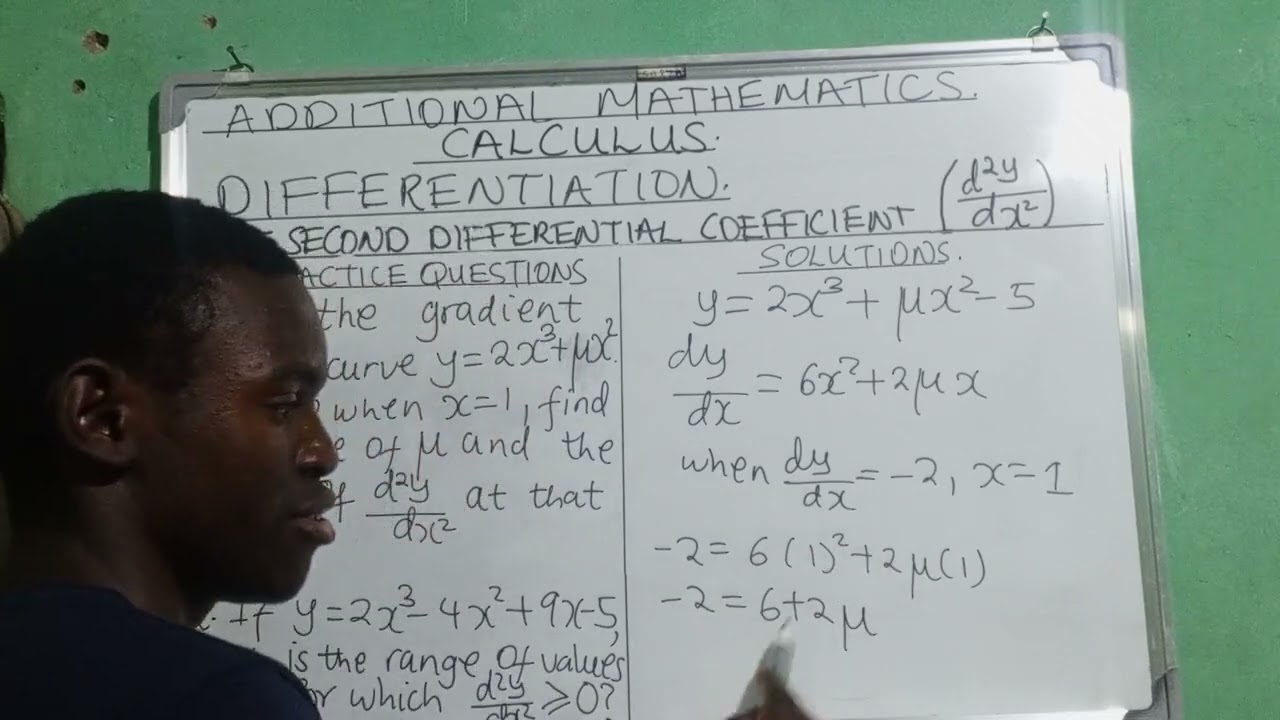 ADDITIONAL MATHEMATICS.
CALCULUS.
DIFFERENTIATION.
SECOND DIFFERENTIAL COEFFICIENT (d²y/dx²)
ACTICE QUESTIONS
the gradient
curve y=2x³+μx²
when x=1, find
of μ and the
d²y/dx² at that
If y=2x³-4x²+9x-5,
is the range of values
or which d²y/dx² ≥0?
SOLUTIONS.
y=2x³+μx²-5
dy/dx = 6x²+2μx
when dy/dx = -2, x=1
-2 = 6(1)²+2μ(1)
-2 = 6+2μ